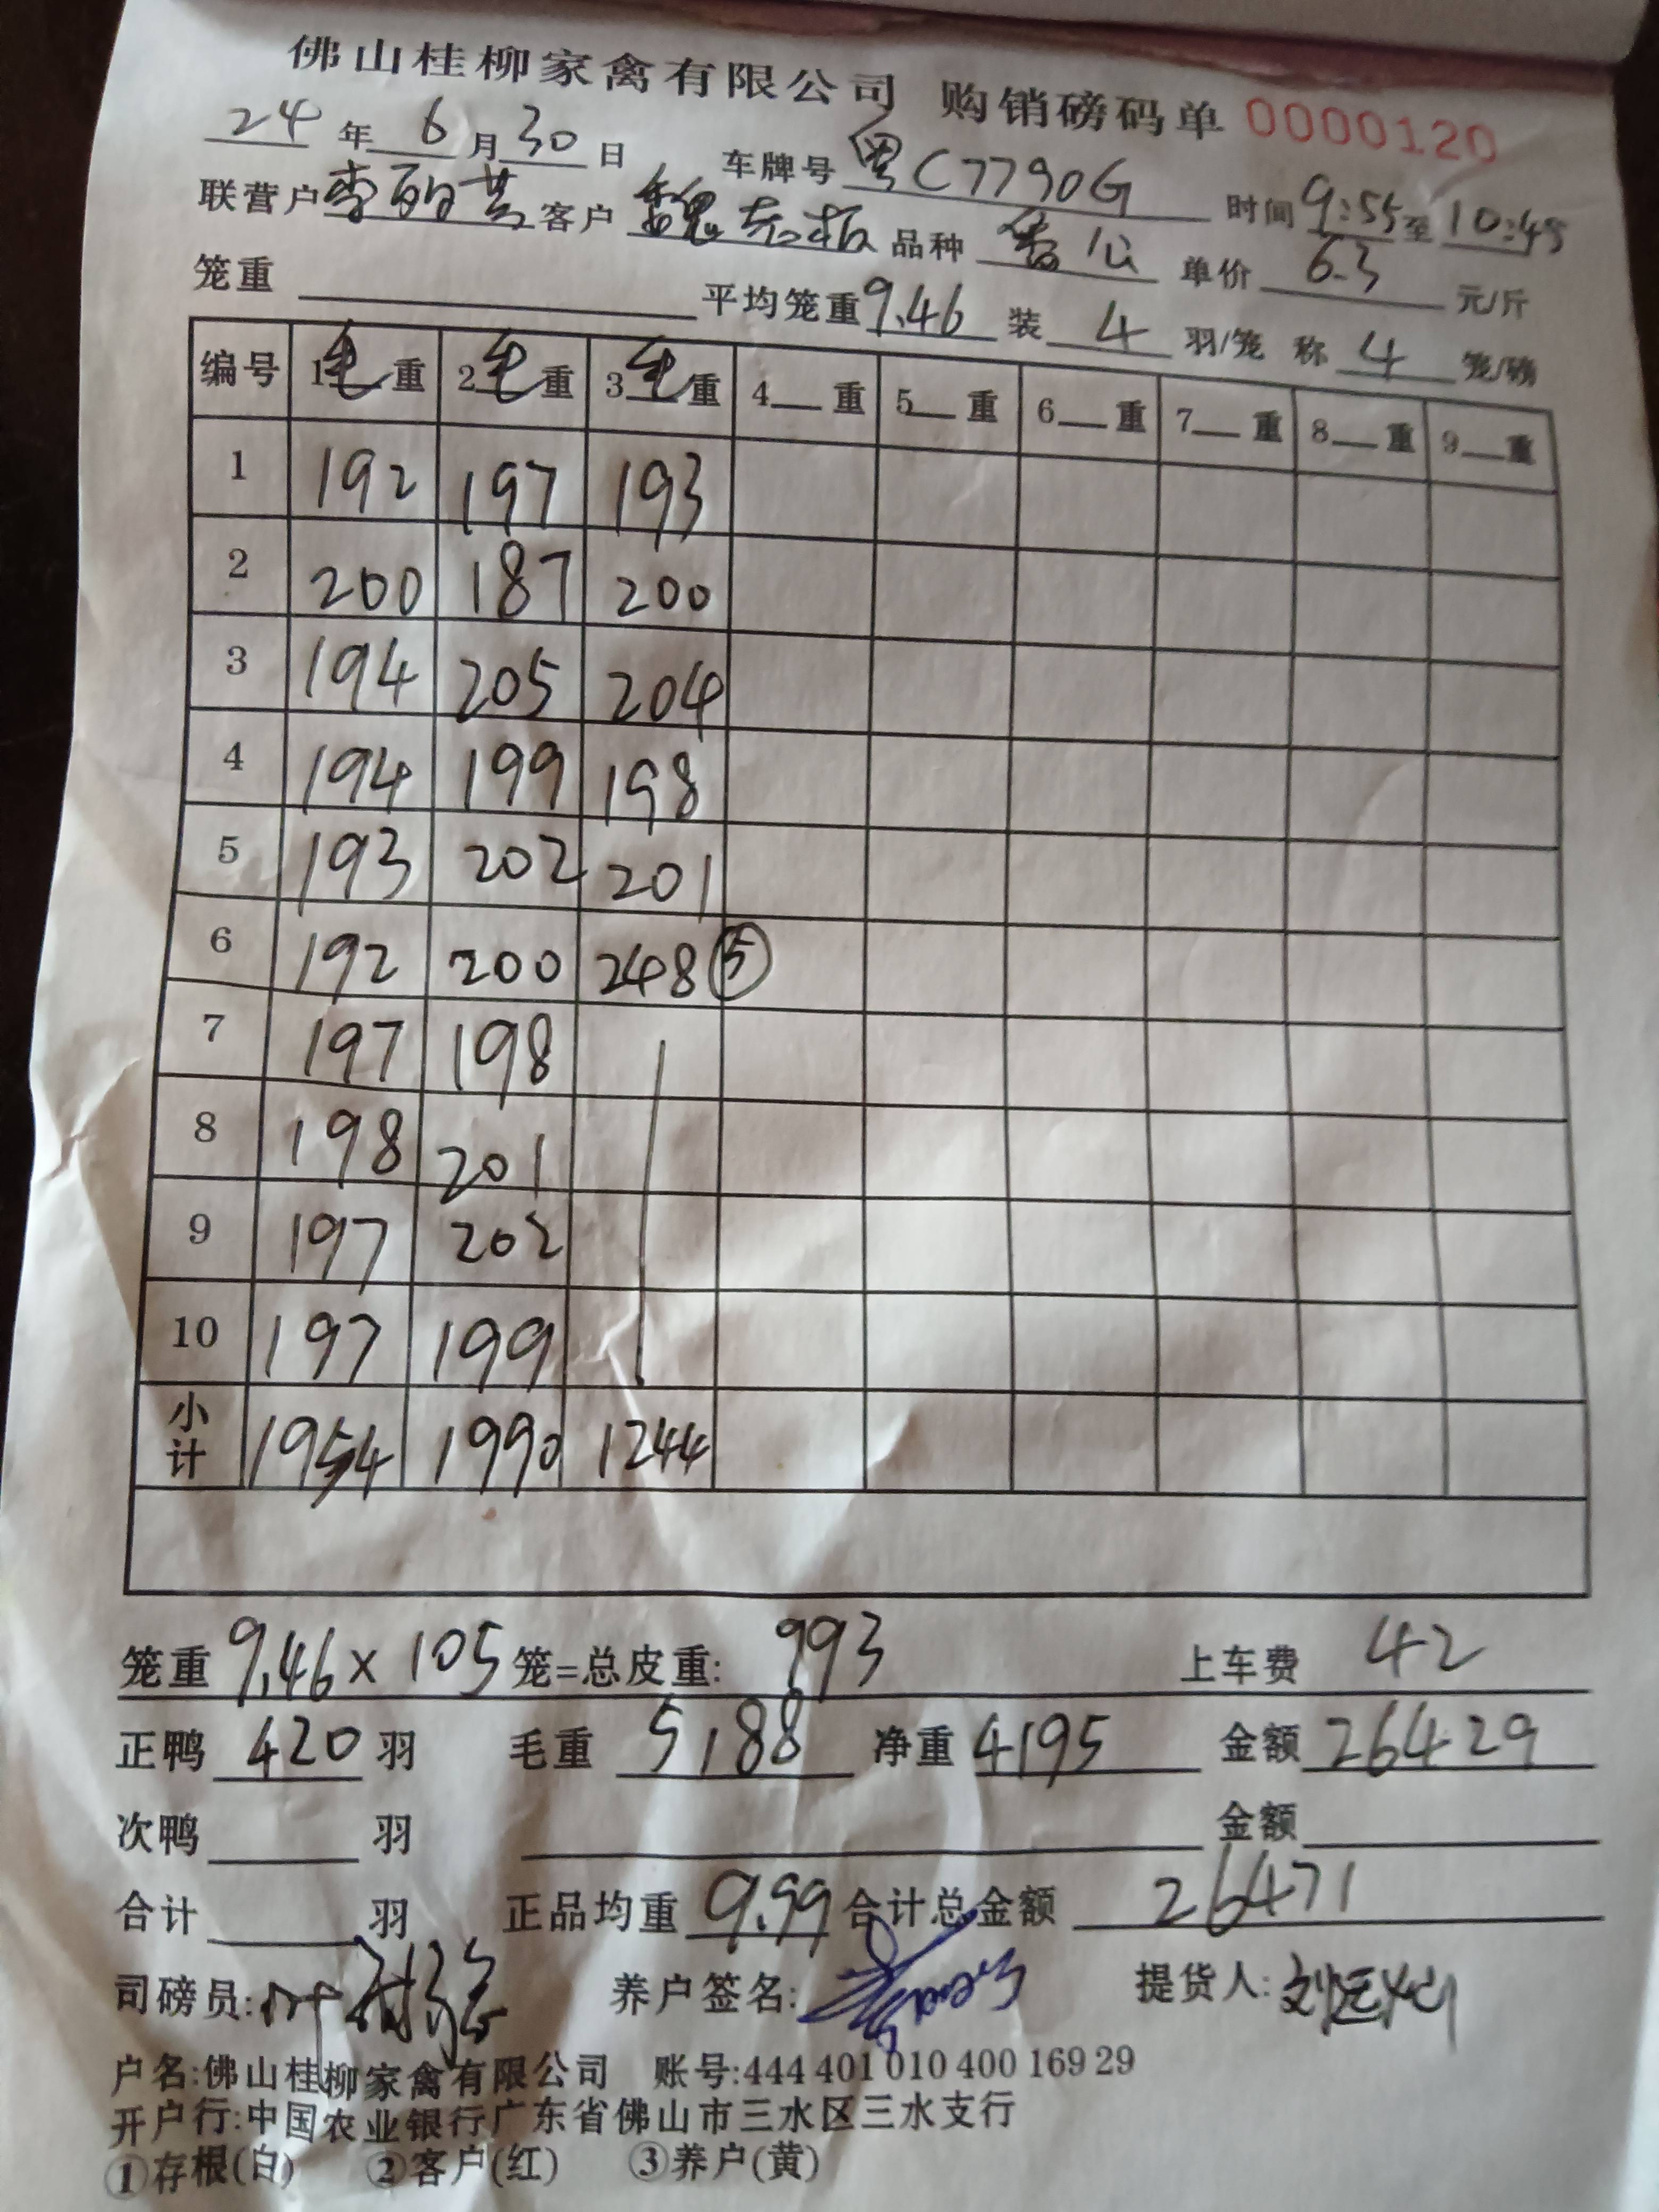 佛山桂柳家禽有限公司 购销磅码单 0000120
24 年 6 月 30 日 车牌号 粤C7790G 时间 9:55 至 10:45
联营户 李 客户 魏老板 品种 番公 单价 6.3 元/斤
笼重 平均笼重 9.46 装 4 羽/笼 称 4 笼/磅
编号 1毛重 2毛重 3毛重 4__重 5__重 6__重 7__重 8__重 9__重
1 192 197 193
2 200 187 200
3 194 205 204
4 194 199 198
5 193 202 201
6 192 200 248 ⑤
7 197 198
8 198 201
9 197 202
10 197 199
小计 1954 1990 1244
笼重 9.46 x 105 笼=总皮重: 993 上车费 42
正鸭 420 羽 毛重 5188 净重 4195 金额 26429
次鸭 羽 金额
合计 羽 正品均重 9.99 合计总金额 26471
司磅员: 叶 养户签名: 提货人: 刘
户名:佛山桂柳家禽有限公司 账号:444 401 010 400 169 29
开户行:中国农业银行广东省佛山市三水区三水支行
①存根(白) ②客户(红) ③养户(黄)